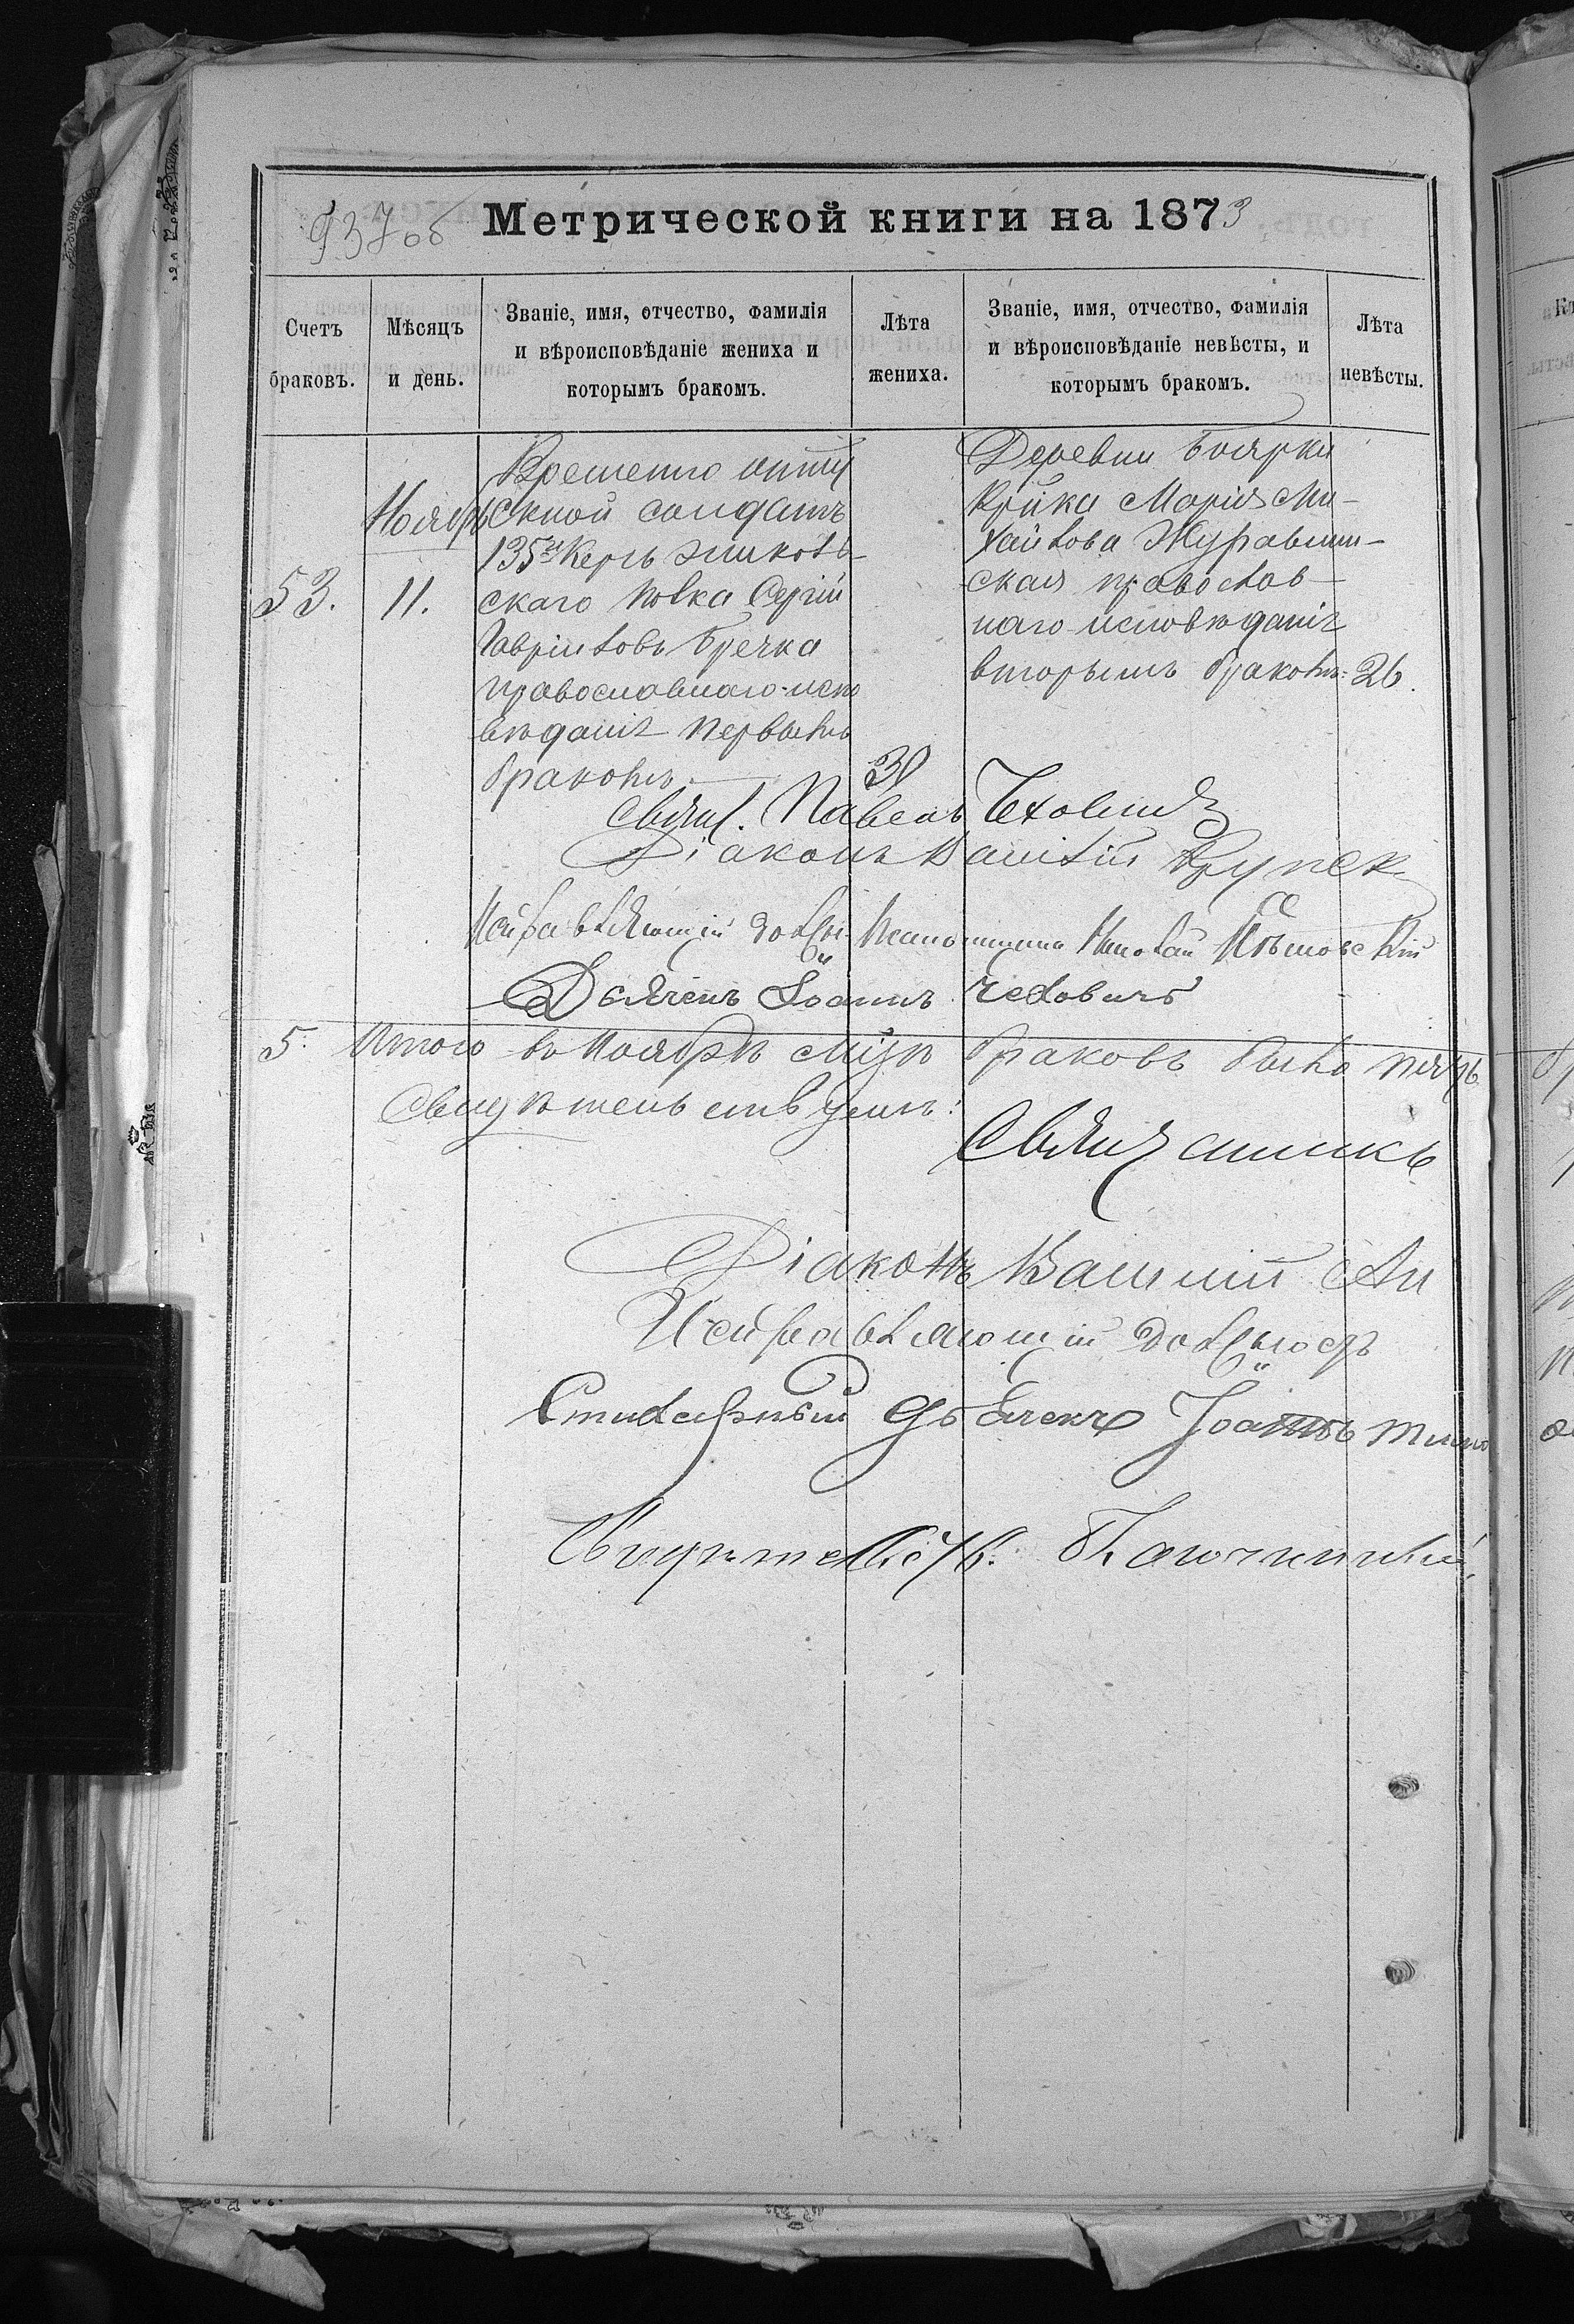 937об Метрической книги на 1873
Счетъ браковъ.
Мѣсяцъ и день.
Званіе, имя, отчество, фамилія
и вѣроисповѣданіе жениха и
которымъ бракомъ.
Лѣта жениха.
Званіе, имя, отчество, фамилія
и вѣроисповѣданіе невѣсты, и
которымъ бракомъ.
Лѣта невѣсты.
53.
Ноябрь
11.
Временно отпу
скной солдатъ
135го Керчь Эниколь-
скаго полка Сергій
Гавріиловъ Гречка
православнаго испо
вѣданія первымъ
бракомъ
30
Деревни Боярки
Кр-ка Марія Ми-
хайлова Журавлин-
ская православ-
наго исповѣданія
вторымъ бракомъ.
26.
Свящ. Павелъ
Діаконъ Василій
Исправляющій долж. Псаломщика Николай
Дьячекъ Іоаннъ Чехович
5. Итого въ Ноябрѣ м-цѣ браковъ было пять.
Свидѣтельствуемъ:
Священникъ
Діаконъ Василій
Исправляющій должность
Стихарный дьячекъ Іоаннъ
Свидѣтельств.